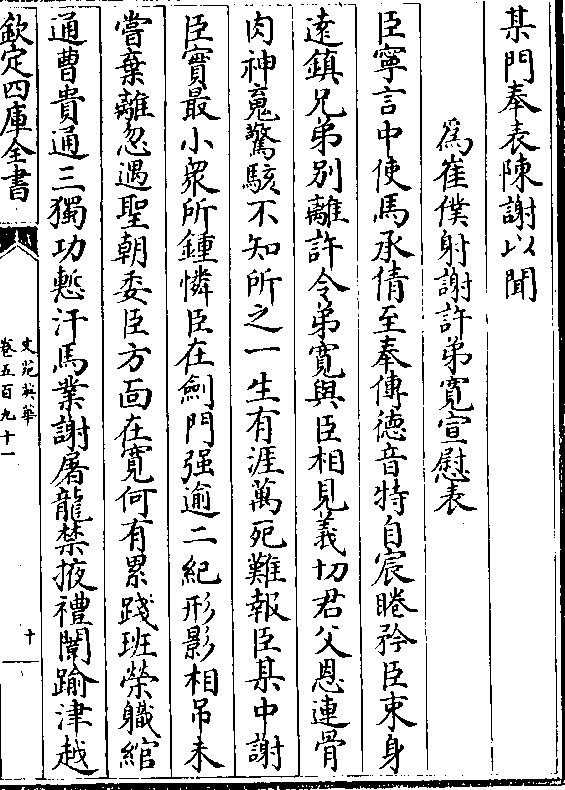 某門奉表陳謝以聞
為崔僕射謝許弟寛宣慰表
臣寧言中使馬承倩至奉傳徳音特自宸睠矜臣束身
逺鎮兄弟别離許令弟寛與臣相見義切君父恩連骨
肉神䰟驚駭不知所之一生有涯萬死難報臣某中謝
臣實最小衆所鍾憐臣在劍門强逾二紀形影相吊未
嘗棄離忽遇聖朝委臣方面在寛何有累踐班榮軄綰
通曹貴通三獨功慙汗馬業謝屠龍禁掖禮闈踰津越
欽定四庫全書
文苑英華
卷五百九十一
十